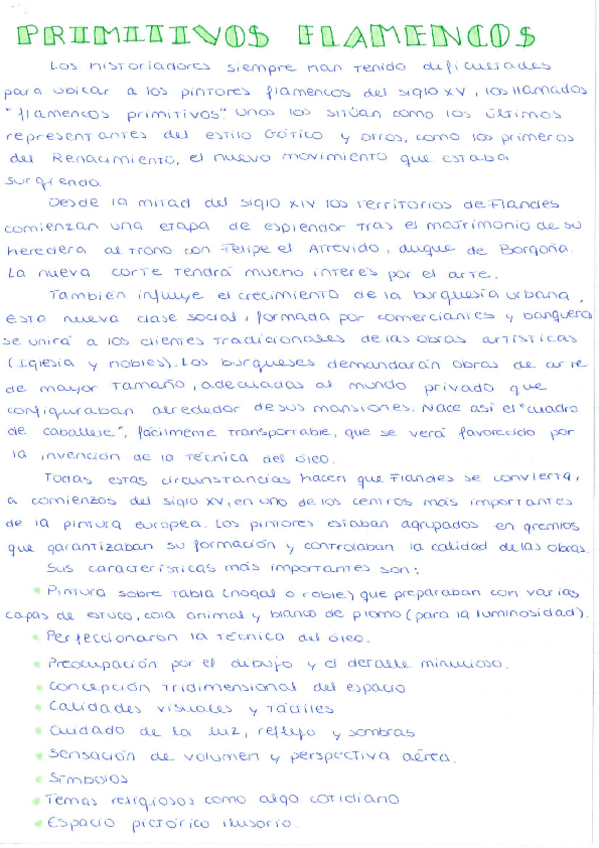 PRIMITIVOS FLAMENCOS
Los historiadores siempre han tenido dificultades
para ubicar a los pintores flamencos del siglo XV, los llamados
"flamencos primitivos" Unos los sitúan como los últimos
representantes del estilo Gótico y otros, como los primeros
del Renacimiento, el nuevo movimiento que estaba
surgiendo.
Desde la mitad del siglo XIV los territorios de Flandes
comienzan una etapa de esplendor tras el matrimonio de su
heredera al trono con Felipe el Atrevido, duque de Borgoña.
La nueva corte tendrá mucho interés por el arte.
También influye el crecimiento de la burguesía urbana,
esta nueva clase social, formada por comerciantes y banqueros
se unirá a los clientes tradicionales de las obras artísticas
(Iglesia y nobles). Los burgueses demandarán obras de arte
de mayor tamaño, adecuadas al mundo privado que
configuraban alrededor de sus mansiones. Nace así el "cuadro
de caballete", fácilmente transportable, que se verá favorecido por
la invención de la técnica del óleo.
Todas estas circunstancias hacen que Flandes se convierta,
a comienzos del siglo XV, en uno de los centros más importantes
de la pintura europea. Los pintores estaban agrupados en gremios
que garantizaban su formación y controlaban la calidad de las obras.
Sus características más importantes son:
• Pintura sobre tabla (nogal o roble) que preparaban con varias
capas de estuco, cola animal y blanco de plomo (para la luminosidad).
• Perfeccionaron la técnica del óleo.
• Preocupación por el dibujo y el detalle minucioso.
• Concepción tridimensional del espacio
• Calidades visuales y táctiles
• Cuidado de la luz, reflejo y sombras
• Sensación de volumen y perspectiva aérea.
• Símbolos
• Temas religiosos como algo cotidiano
• Espacio pictórico ilusorio.